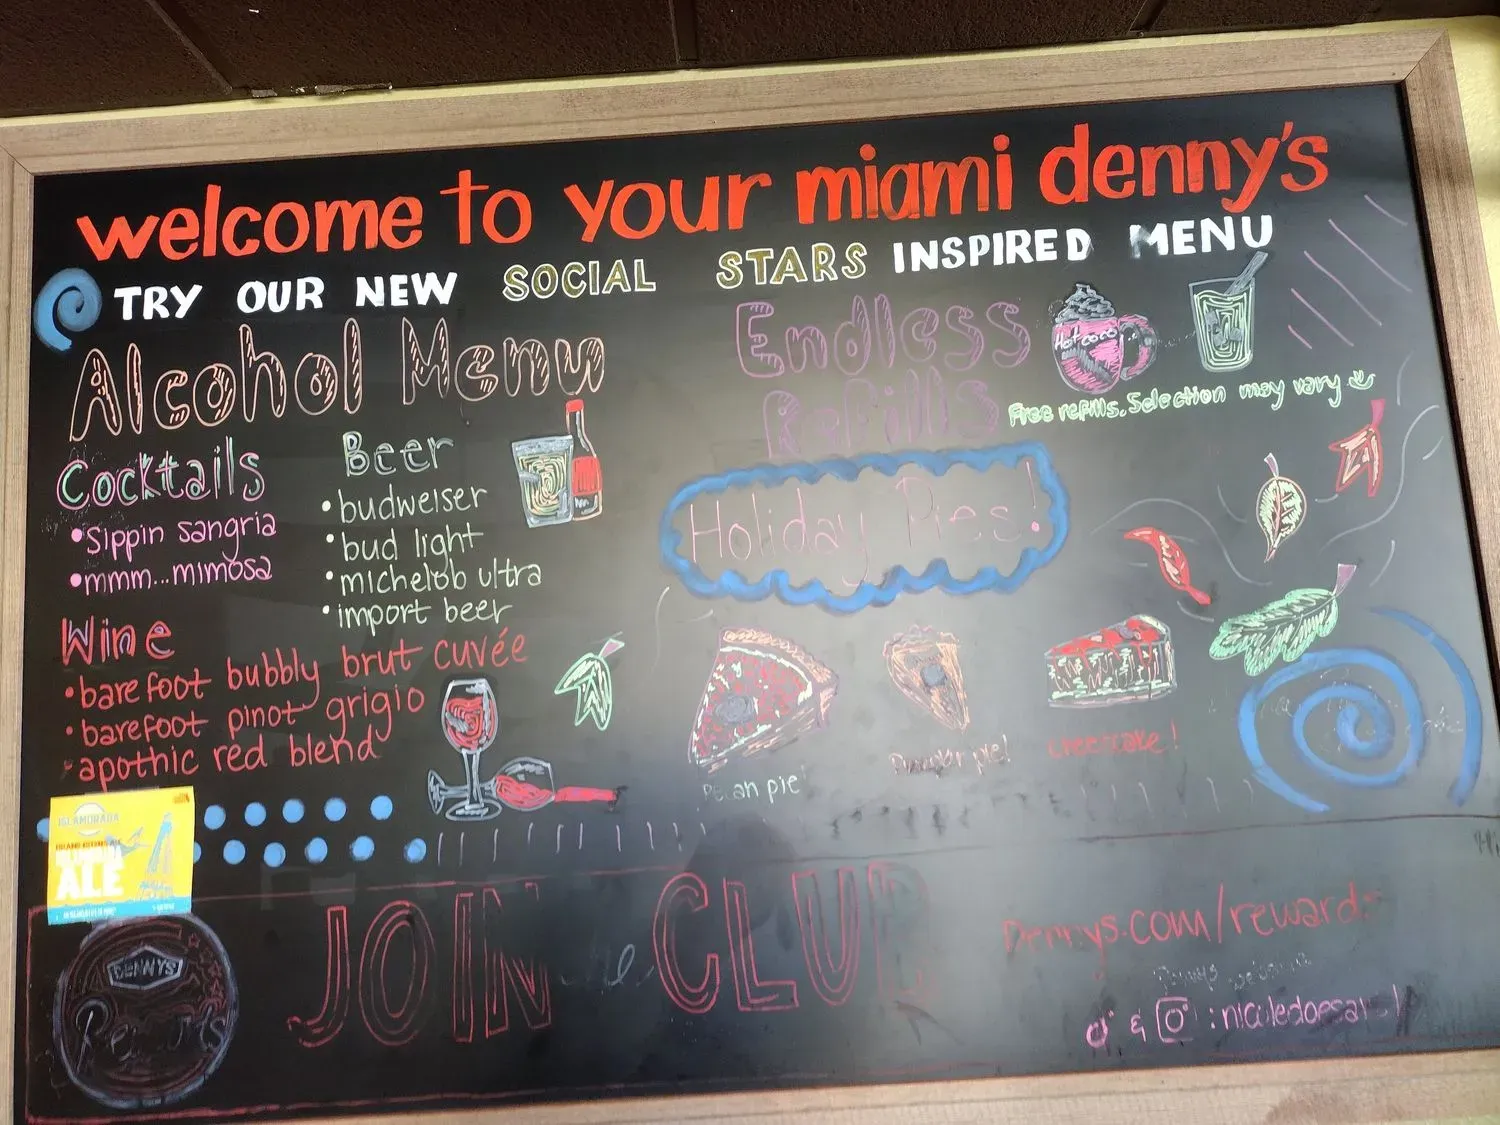 welcome to your miami denny's
TRY OUR NEW SOCIAL STARS INSPIRED MENU
Alcohol Menu
Cocktails
•sippin sangria
•mmm...mimosa
Beer
•budweiser
•bud light
•michelob ultra
•import beer
Wine
•barefoot bubbly brut cuvée
•barefoot pinot grigio
•apothic red blend
Endless
Refills
Hot coco
Free refills. Selection may vary
Holiday Pies!
pecan pie!
Pumpkin pie!
cheesecake!
ISLAMORADA
ALE
DENNYS
Rewards
JOIN the CLUB
Dennys.com/rewards
& : nicoledoesart